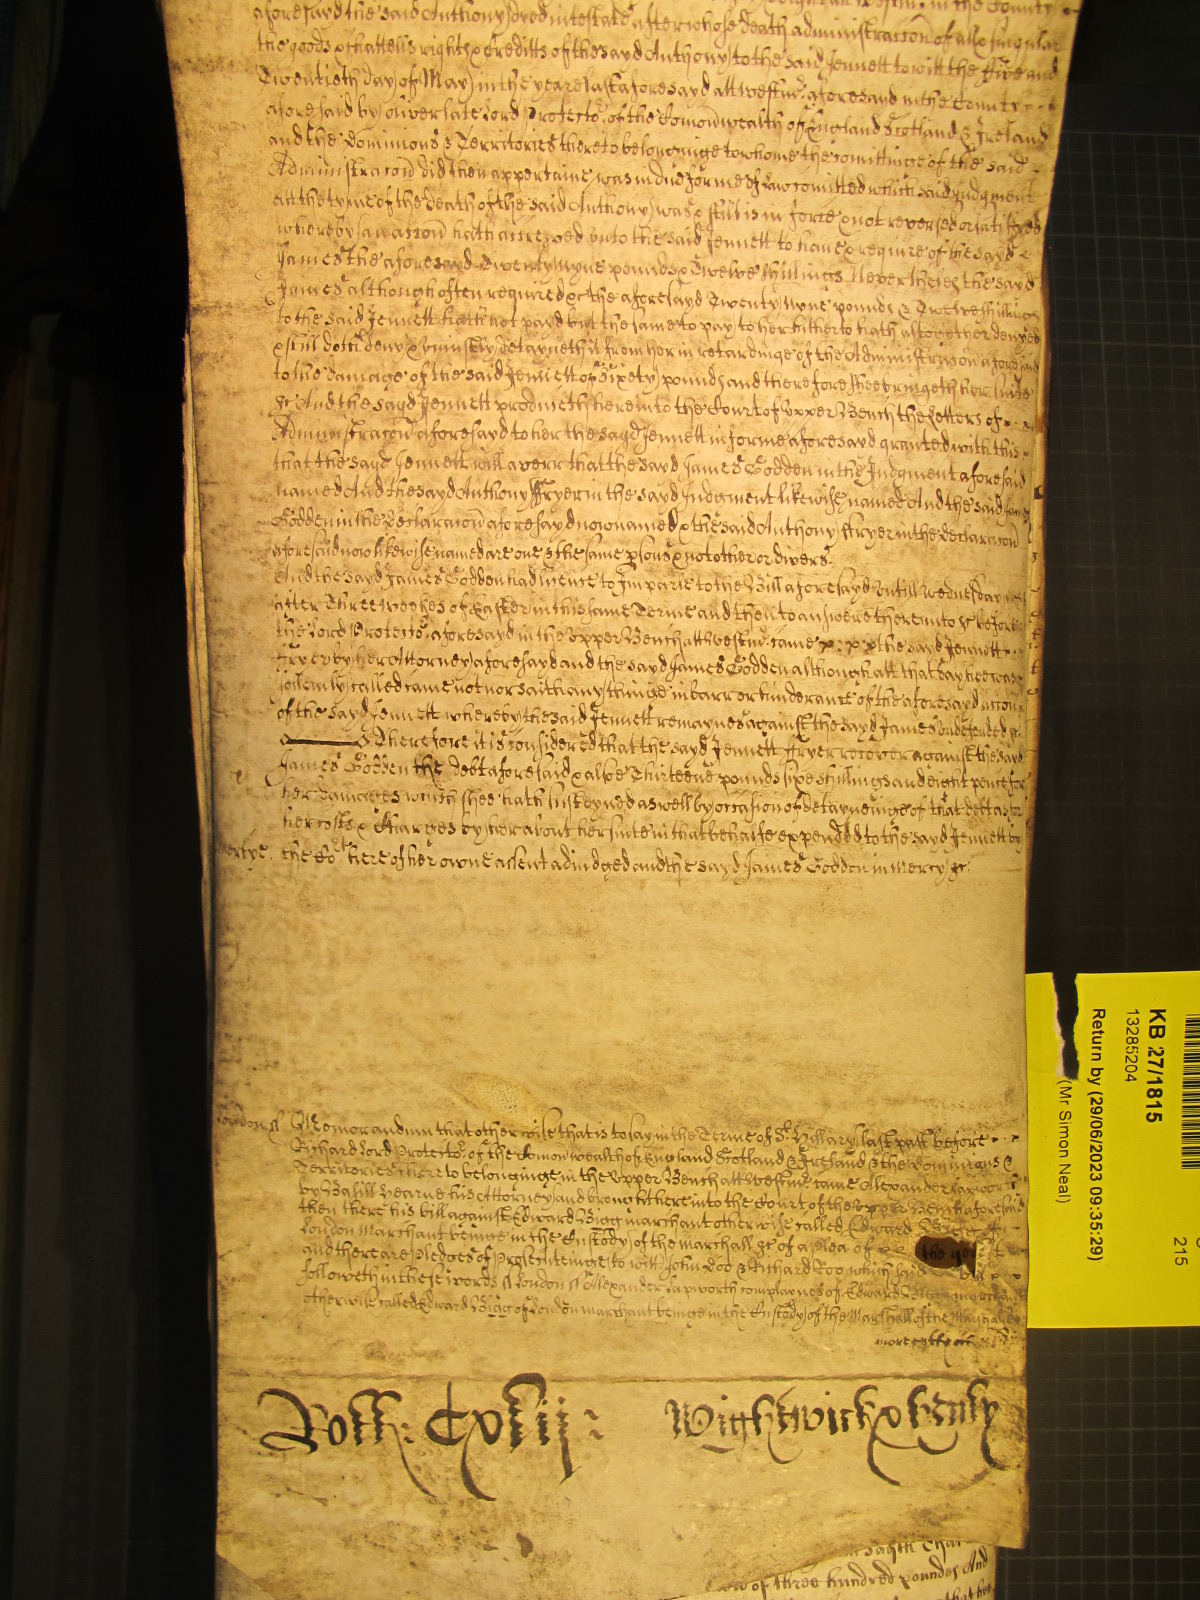 aforesayd the said Anthony dyed intestate after whose death administracon of all & singular
the goods & chattells rights & creditts of the sayd Anthony to the said Jennett to witt the five and
Twentieth day of May in the yeare last aforesayd att Westmr. aforesaid in the County
aforesaid by Oliver late Lord Protector. of the Comonwealth of England Scotland & Ireland
and the Dominions & Territories thereto belonginge to whome the comittinge of the said
Administracon did then appertaine, was in due forme of law comitted which said Judgment
att the tyme of the death of the said Anthony was & still is in force & not reversed or satisfyed
whereby an accon hath accrewed unto the said Jennett to have & require of the sayd
James the aforesayd Twenty nyne pounds & Twelve shillings Nevertheles the sayd
James although often required &c the aforesayd Twenty nyne pounds & Twelve shillings
to the said Jennett hath not payd but the same to pay to her hitherto hath altogether denyed
& still doth deny & uniustly detayneth it from her in retardinge of the Administracon aforesaid
to the damage of the said Jennett of Sixety pounds and therefore shee bringeth her suite
&c And the sayd Jennett produceth here into the Court of Upper Bench the Letters of
Administracon aforesayd to her the sayd Jennett in forme aforesayd granted with this
that the sayd Jennett will averr that the sayd James Godden in the Judgment aforesaid
named And the sayd Anthony Fryer in the sayd Judgment likewise named And the said James
Godden in the Declaracon aforesayd now named & the said Anthony Fryer in the declaracon
aforesaid now likewise named are one & the same psons & not other or divers.
And the sayd James Godden had licence to Imparle to the Bill aforesayd untill Wednesday
after Three weekes of Easter in this same Terme and then to answere thereunto &c before
the Lord Protector. aforesayd in the Upper Bench att Westmr. came the sayd Jennett
Fryer by her Attorney aforesayd and the sayd James Godden although att that day hee was
solemly called came not nor saith any thinge in barr or hinderance of the aforesayd accon
of the sayd Jennett whereby the said Jennett remaynes against the sayd James undefended &c
Therefore it is considered that the sayd Jennett Fryer recover against the sayd
James Godden the debt aforesaid & alsoe Thirteene pounds sixe shillings and eight pence for
her damages which shee hath susteyned aswell by occasion of detayneinge of that debt as for
her costs & Charges by her about her suite in that behalfe expended to the sayd Jennett by
Mercye. the Cort here of her owne assent adiudged and the sayd James Godden in Mercy &c.
London ss Memorandum that otherwise that is to say in the Terme of St. Hillary last past before
Richard Lord Protector. of the Comonwealth of England Scotland & Ireland & the Dominions &
Territories thereto belonginge in the Upper Bench att Westmr. came Alexander Lapworth
by Basill Hearne his Attorney and brought here into the Court of the Upper Bench aforesaid
then there his bill against Edward Bigg marchant otherwise called Edward Bigg of
London Marchant beinge in the Custody of the marshall &c of a plea of
and there are Pledges of Prosecuteinge to witt John Doo & Richard Roo which said bill
followeth in these words ss London ss Alexander Lapworth complaynes of Edward Bigg marchant
otherwise called Edward Bigg of London marchant beinge in the Custody of the Marshall of the Marshalsey
more
Roll: Cxliij: Wightwick & Henly
KB 27/1815
13285204
Return by (29/06/2023 09:35:29)
(Mr Simon Neal)
215
of three hundred poundes And